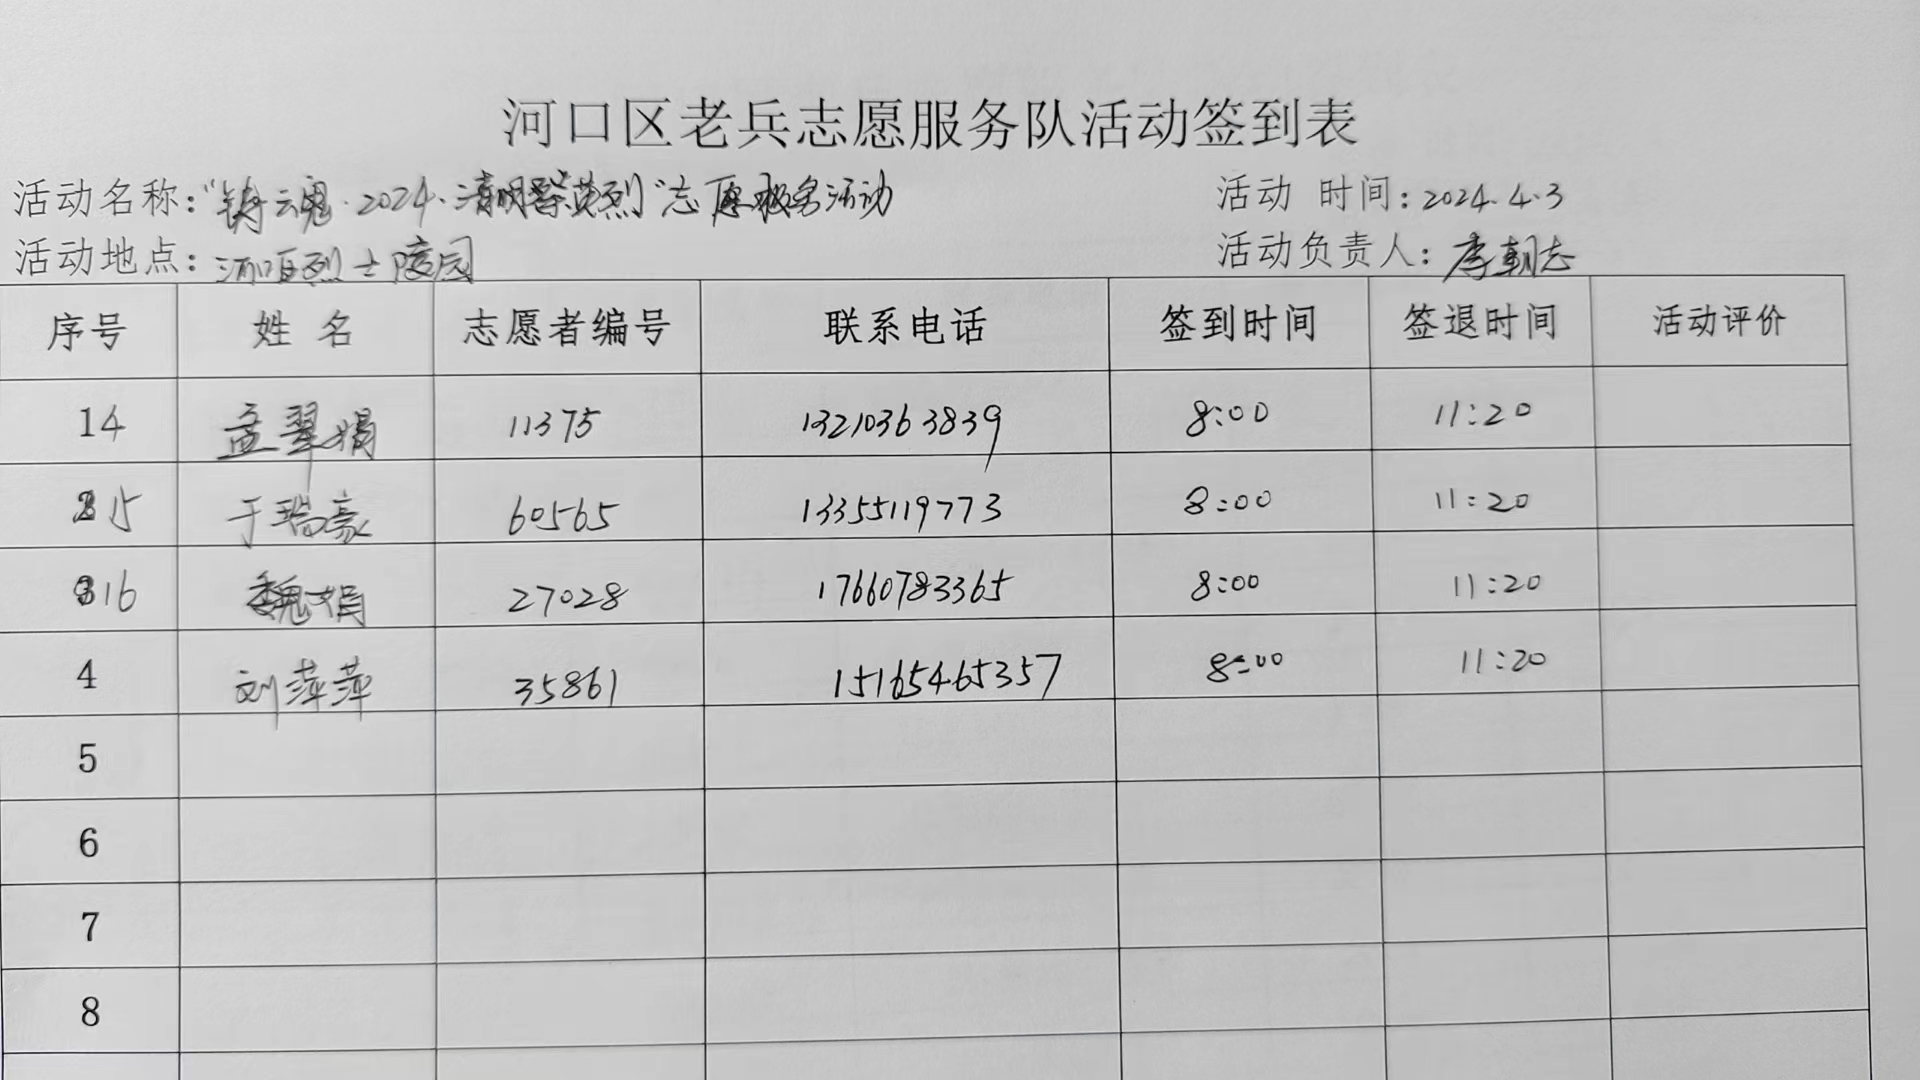 河口区老兵志愿服务队活动签到表
活动名称:“铸云魂·2024·清明祭英烈”志愿服务活动 活动 时间:2024.4.3
活动地点:河口区烈士陵园 活动负责人:李朝志
序号 姓 名 志愿者编号 联系电话 签到时间 签退时间 活动评价
14 孟翠娟 11375 13210363839 8:00 11:20
15 于瑞豪 60565 13355119773 8:00 11:20
16 魏娟 27028 17660783365 8:00 11:20
4 刘萍萍 35861 15165465357 8:00 11:20
5
6
7
8